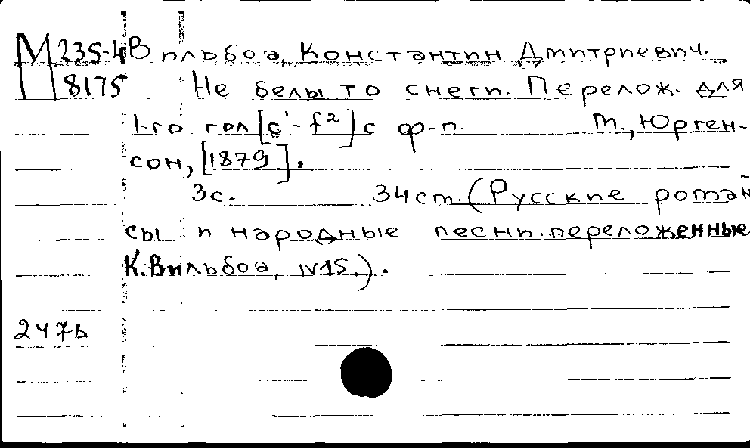 М 235-4 Вильбоа, Константин Дмитриевич.
8175 Не белы то снеги. Перелож. для
1-го гол [c'-f²] с ф-п. М., Юрген-
сон, [1879].
3с. 34см. (Русские роман
сы и народные песни. переложенные
К. Вильбоа, №15.).
247ь